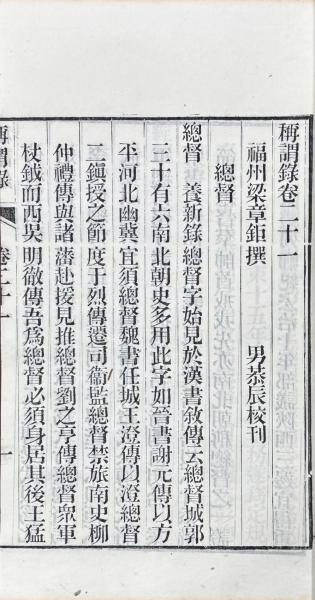 稱謂錄卷二十一
福州梁章鉅撰　男恭辰校刊
總督
總督　養新錄總督字始見於漢書敘傳云總督城郭
三十有六南北朝史多用此字如晉書謝元傳以方
平河北幽冀宜須總督魏書任城王澄傳以澄總督
二鎮授之節度于烈傳遷司衞監總督禁旅南史柳
仲禮傳與諸藩赴援見推總督劉之亨傳總督眾軍
杖鉞而西吳明徹傳吾爲總督必須身居其後王猛
稱謂錄　卷二十一　一